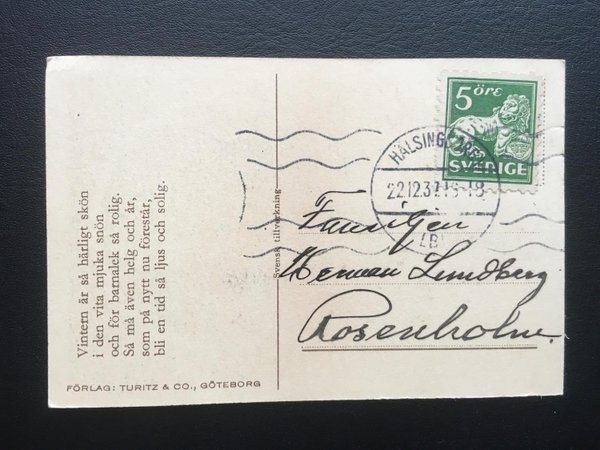 Vintern är så härligt skön
i den vita mjuka snön
och för barnalek så rolig.
Så må även helg och år,
som på nytt nu förestår,
bli en tid så ljus och solig.
FÖRLAG: TURITZ & CO., GÖTEBORG
Svensk tillverkning
5 öre
SVERIGE
HÄLSINGBORG
22.12.37.16-18
LBR
Familjen
Herman Lundberg
Rosenholm.